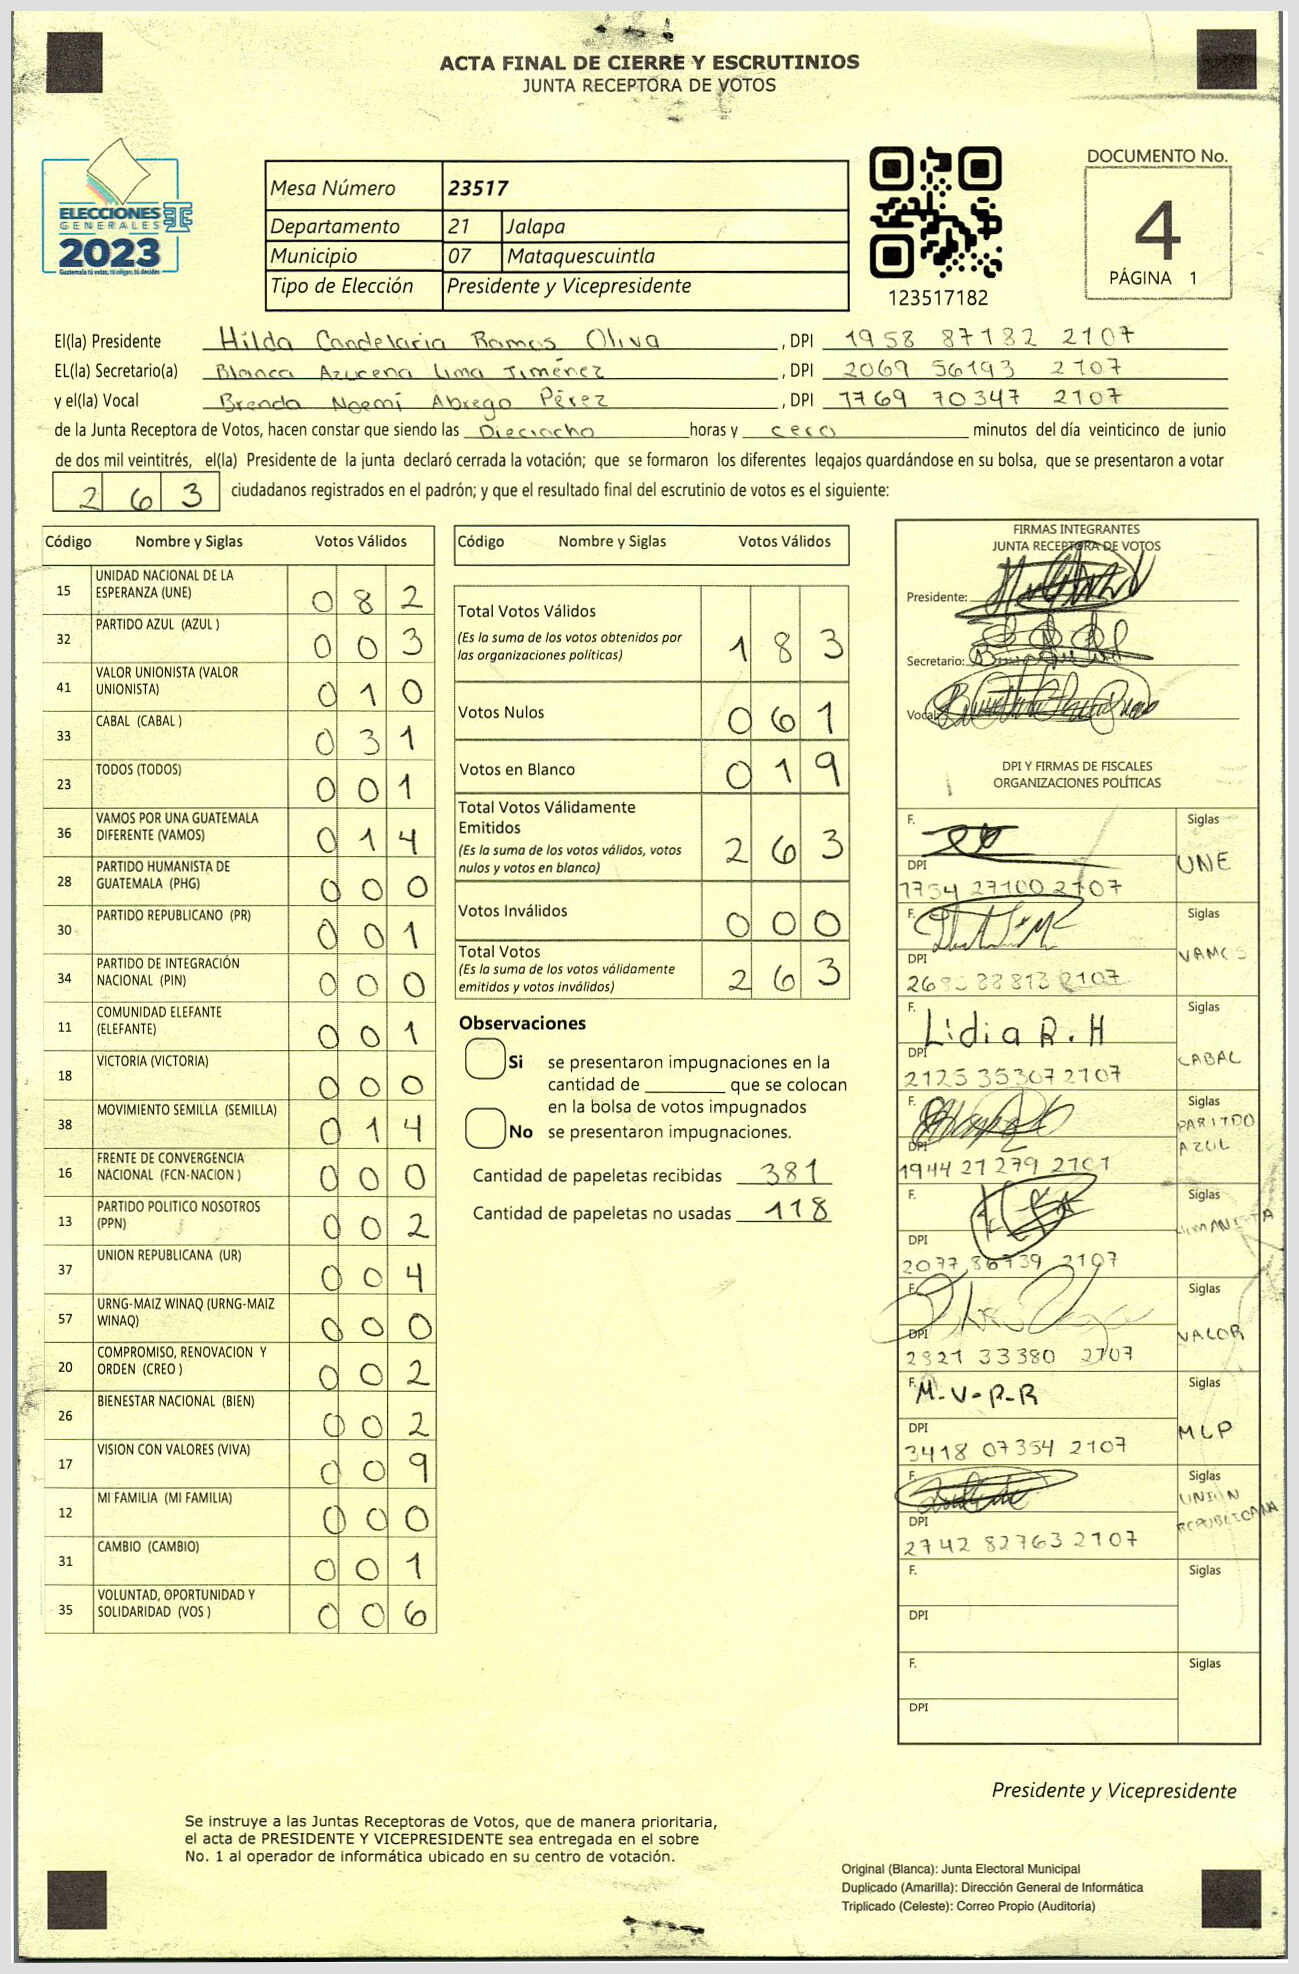 ACTA FINAL DE CIERRE Y ESCRUTINIOS
JUNTA RECEPTORA DE VOTOS
ELECCIONES
GENERALES
2023
Guatemala tú votas, tú eliges, tú decides
Mesa Número 23517
Departamento 21 Jalapa
Municipio 07 Mataquescuintla
Tipo de Elección Presidente y Vicepresidente
123517182
DOCUMENTO No.
4
PÁGINA 1
El(la) Presidente Hilda Candelaria Ramos Oliva , DPI 1958 87182 2107
EL(la) Secretario(a) Blanca Azucena Lima Jiménez , DPI 2069 56193 2107
y el(la) Vocal Brenda Noemí Abrego Pérez , DPI 1769 70347 2107
de la Junta Receptora de Votos, hacen constar que siendo las Dieciocho horas y cero minutos del día veinticinco de junio
de dos mil veintitrés, el(la) Presidente de la junta declaró cerrada la votación; que se formaron los diferentes legajos guardándose en su bolsa, que se presentaron a votar
263 ciudadanos registrados en el padrón; y que el resultado final del escrutinio de votos es el siguiente:
Código Nombre y Siglas Votos Válidos
15 UNIDAD NACIONAL DE LA
ESPERANZA (UNE) 082
32 PARTIDO AZUL (AZUL ) 003
41 VALOR UNIONISTA (VALOR
UNIONISTA) 010
33 CABAL (CABAL ) 031
23 TODOS (TODOS) 001
36 VAMOS POR UNA GUATEMALA
DIFERENTE (VAMOS) 014
28 PARTIDO HUMANISTA DE
GUATEMALA (PHG) 000
30 PARTIDO REPUBLICANO (PR) 001
34 PARTIDO DE INTEGRACIÓN
NACIONAL (PIN) 000
11 COMUNIDAD ELEFANTE
(ELEFANTE) 001
18 VICTORIA (VICTORIA) 000
38 MOVIMIENTO SEMILLA (SEMILLA) 014
16 FRENTE DE CONVERGENCIA
NACIONAL (FCN-NACION ) 000
13 PARTIDO POLITICO NOSOTROS
(PPN) 002
37 UNION REPUBLICANA (UR) 004
57 URNG-MAIZ WINAQ (URNG-MAIZ
WINAQ) 000
20 COMPROMISO, RENOVACION Y
ORDEN (CREO ) 002
26 BIENESTAR NACIONAL (BIEN) 002
17 VISION CON VALORES (VIVA) 009
12 MI FAMILIA (MI FAMILIA) 000
31 CAMBIO (CAMBIO) 001
35 VOLUNTAD, OPORTUNIDAD Y
SOLIDARIDAD (VOS ) 006
Código Nombre y Siglas Votos Válidos
Total Votos Válidos
(Es la suma de los votos obtenidos por
las organizaciones políticas) 183
Votos Nulos 061
Votos en Blanco 019
Total Votos Válidamente
Emitidos
(Es la suma de los votos válidos, votos
nulos y votos en blanco) 263
Votos Inválidos 000
Total Votos
(Es la suma de los votos válidamente
emitidos y votos inválidos) 263
Observaciones
Si se presentaron impugnaciones en la
cantidad de ________ que se colocan
en la bolsa de votos impugnados
No se presentaron impugnaciones.
Cantidad de papeletas recibidas 381
Cantidad de papeletas no usadas 118
FIRMAS INTEGRANTES
JUNTA RECEPTORA DE VOTOS
Presidente:
Secretario:
Vocal:
DPI Y FIRMAS DE FISCALES
ORGANIZACIONES POLÍTICAS
F. Siglas
UNE
DPI
1754 27100 2107
F. Siglas
VAMOS
DPI
2107
F. Lidia R. H Siglas
CABAL
DPI
2125 35307 2107
F. Siglas
PARTIDO
AZUL
DPI
1944 21279 2107
F. Siglas
HUMANISTA
DPI
2077 86739 2107
F. Siglas
VALOR
DPI
2821 33380 2107
F. M-V-P-R Siglas
MLP
DPI
3418 07354 2107
F. Siglas
UNIÓN
REPUBLICANA
DPI
2742 82763 2107
F. Siglas
DPI
F. Siglas
DPI
Presidente y Vicepresidente
Se instruye a las Juntas Receptoras de Votos, que de manera prioritaria,
el acta de PRESIDENTE Y VICEPRESIDENTE sea entregada en el sobre
No. 1 al operador de informática ubicado en su centro de votación.
Original (Blanca): Junta Electoral Municipal
Duplicado (Amarilla): Dirección General de Informática
Triplicado (Celeste): Correo Propio (Auditoría)